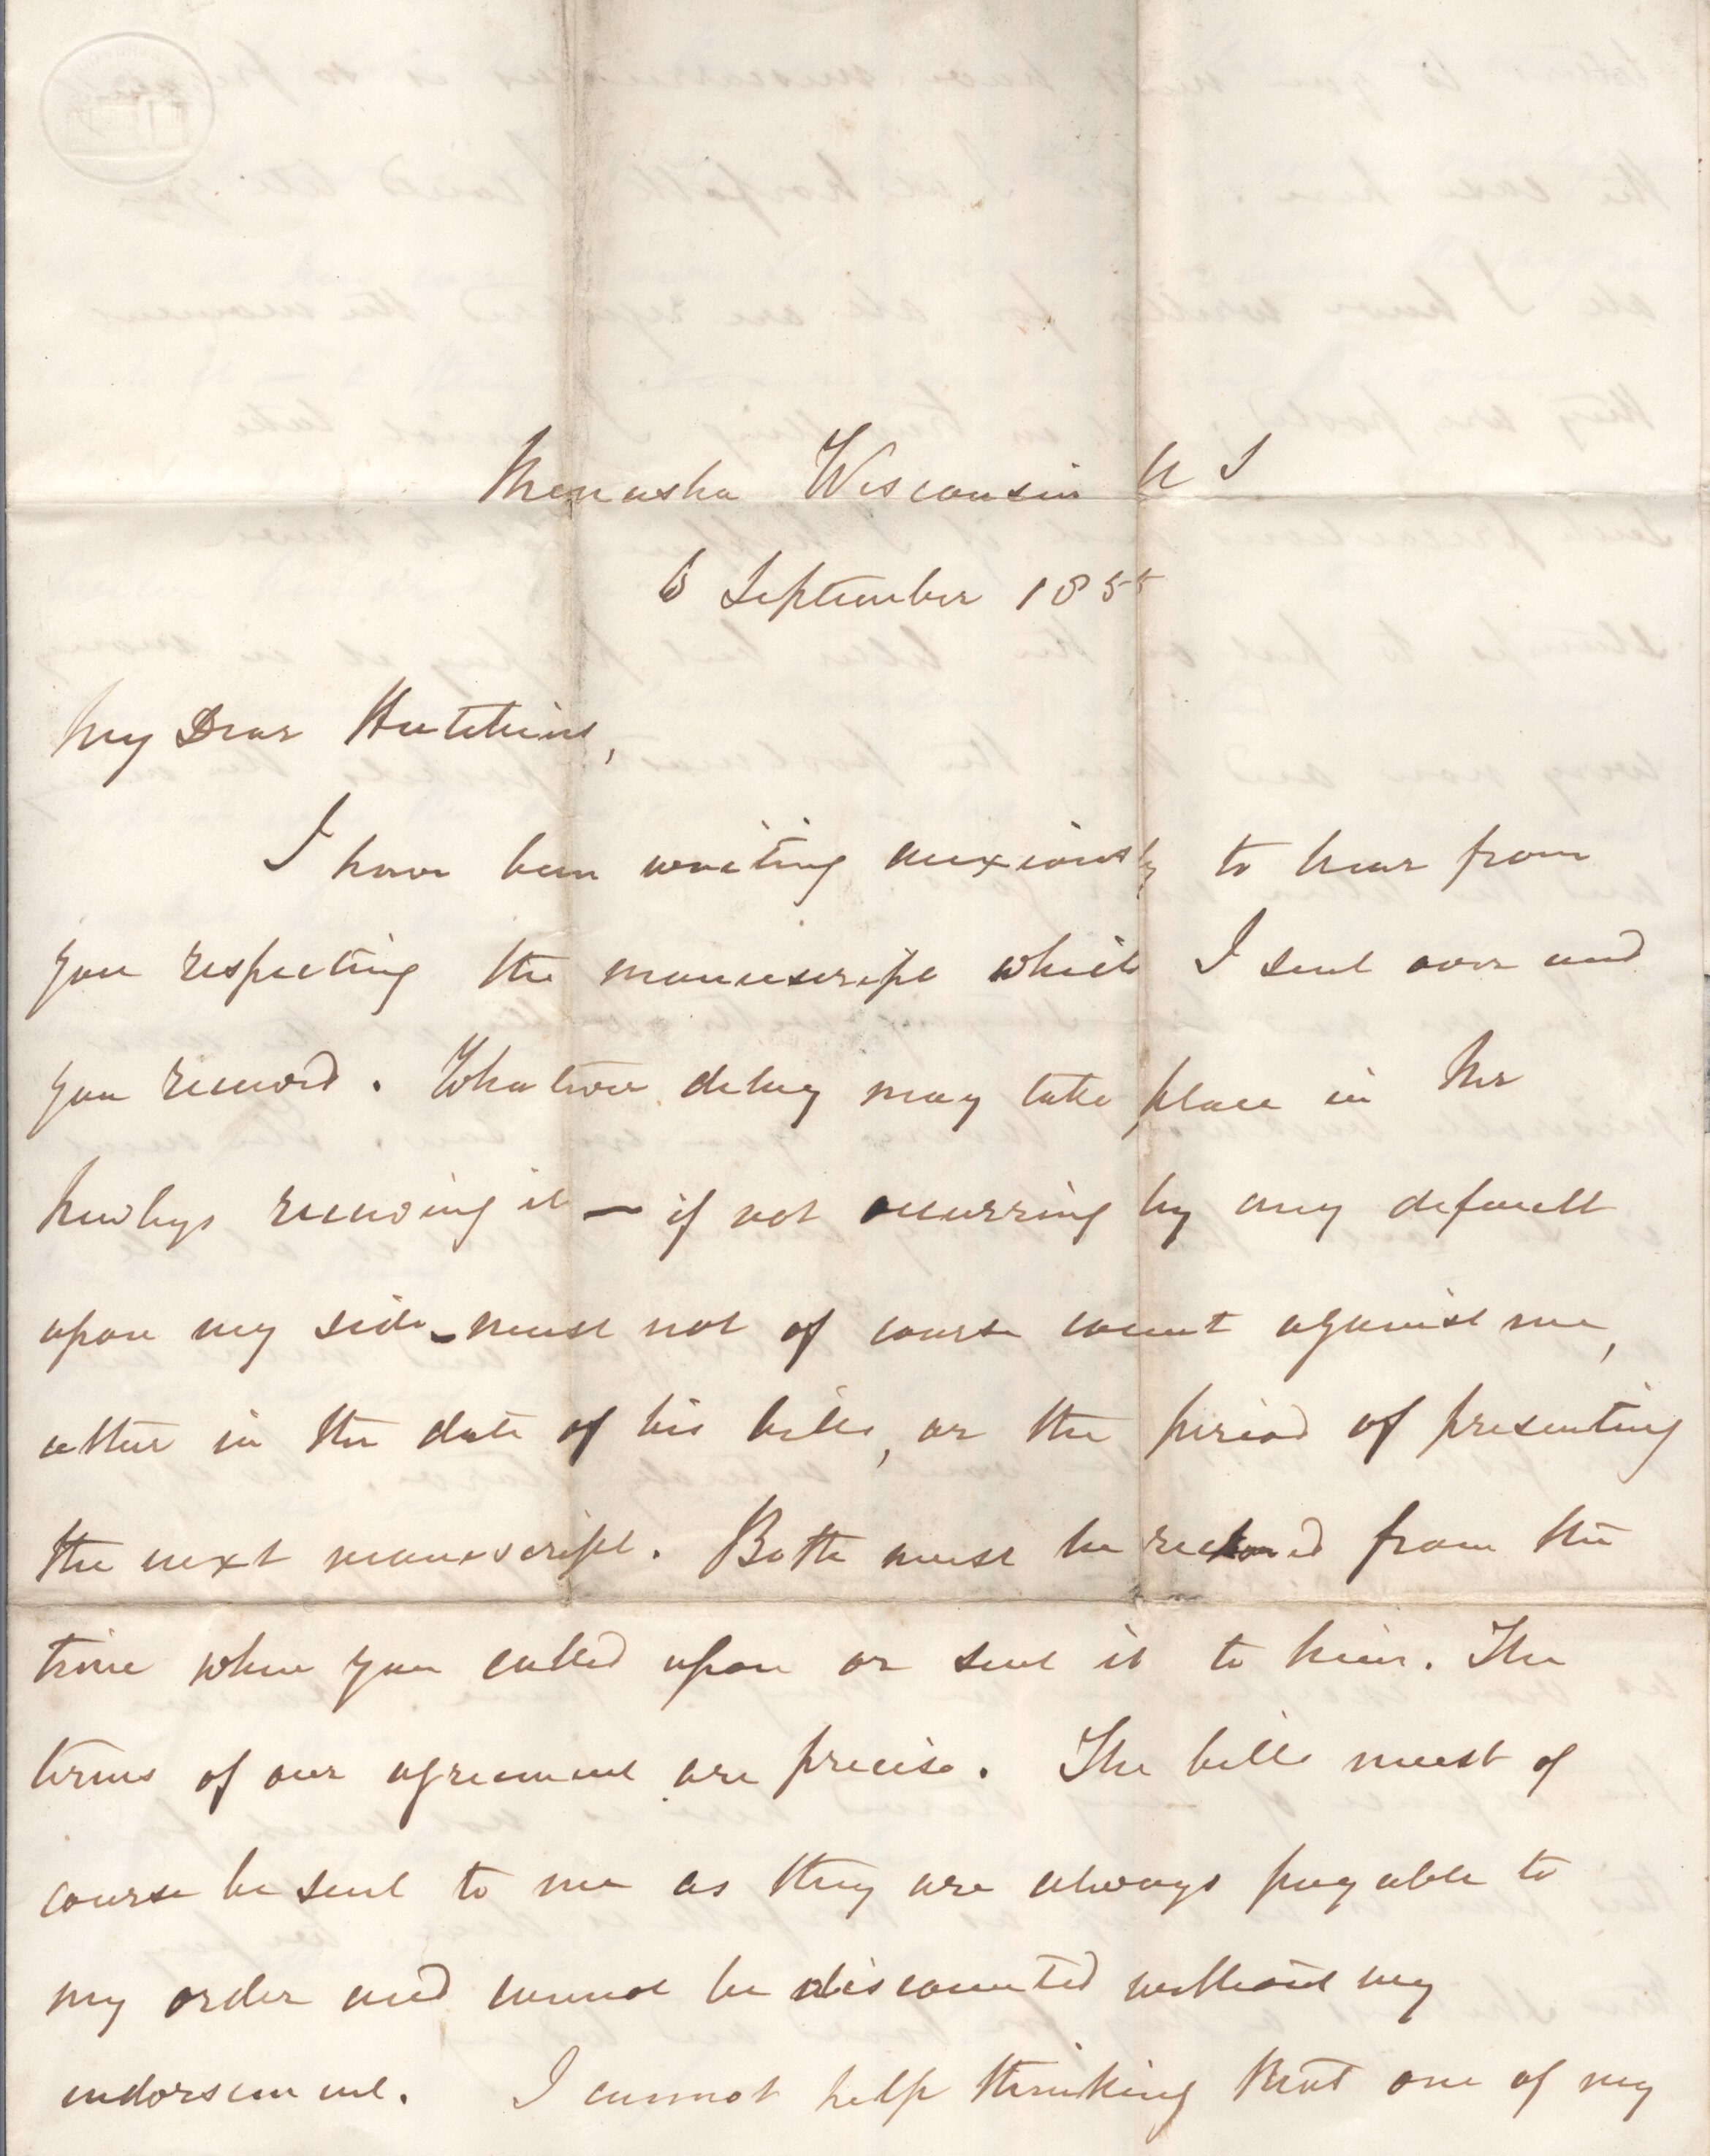 Menasha Wisconsin U S
6 September 1855
My Dear Hutchins,
I have been waiting anxiously to hear from
you respecting the manuscript which I sent over and
you received. Whatever delay may take place in Mr
Newbys receiving it — if not occurring by any default
upon my side – must not of course count against me,
either in the date of his bills, or the period of presenting
the next manuscript. Both must be reckoned from the
time when you called upon or sent it to him. The
terms of our agreement are precise. The bills must of
course be sent to me as they are always payable to
my order and cannot be discounted without my
endorsement. I cannot help thinking that one of my